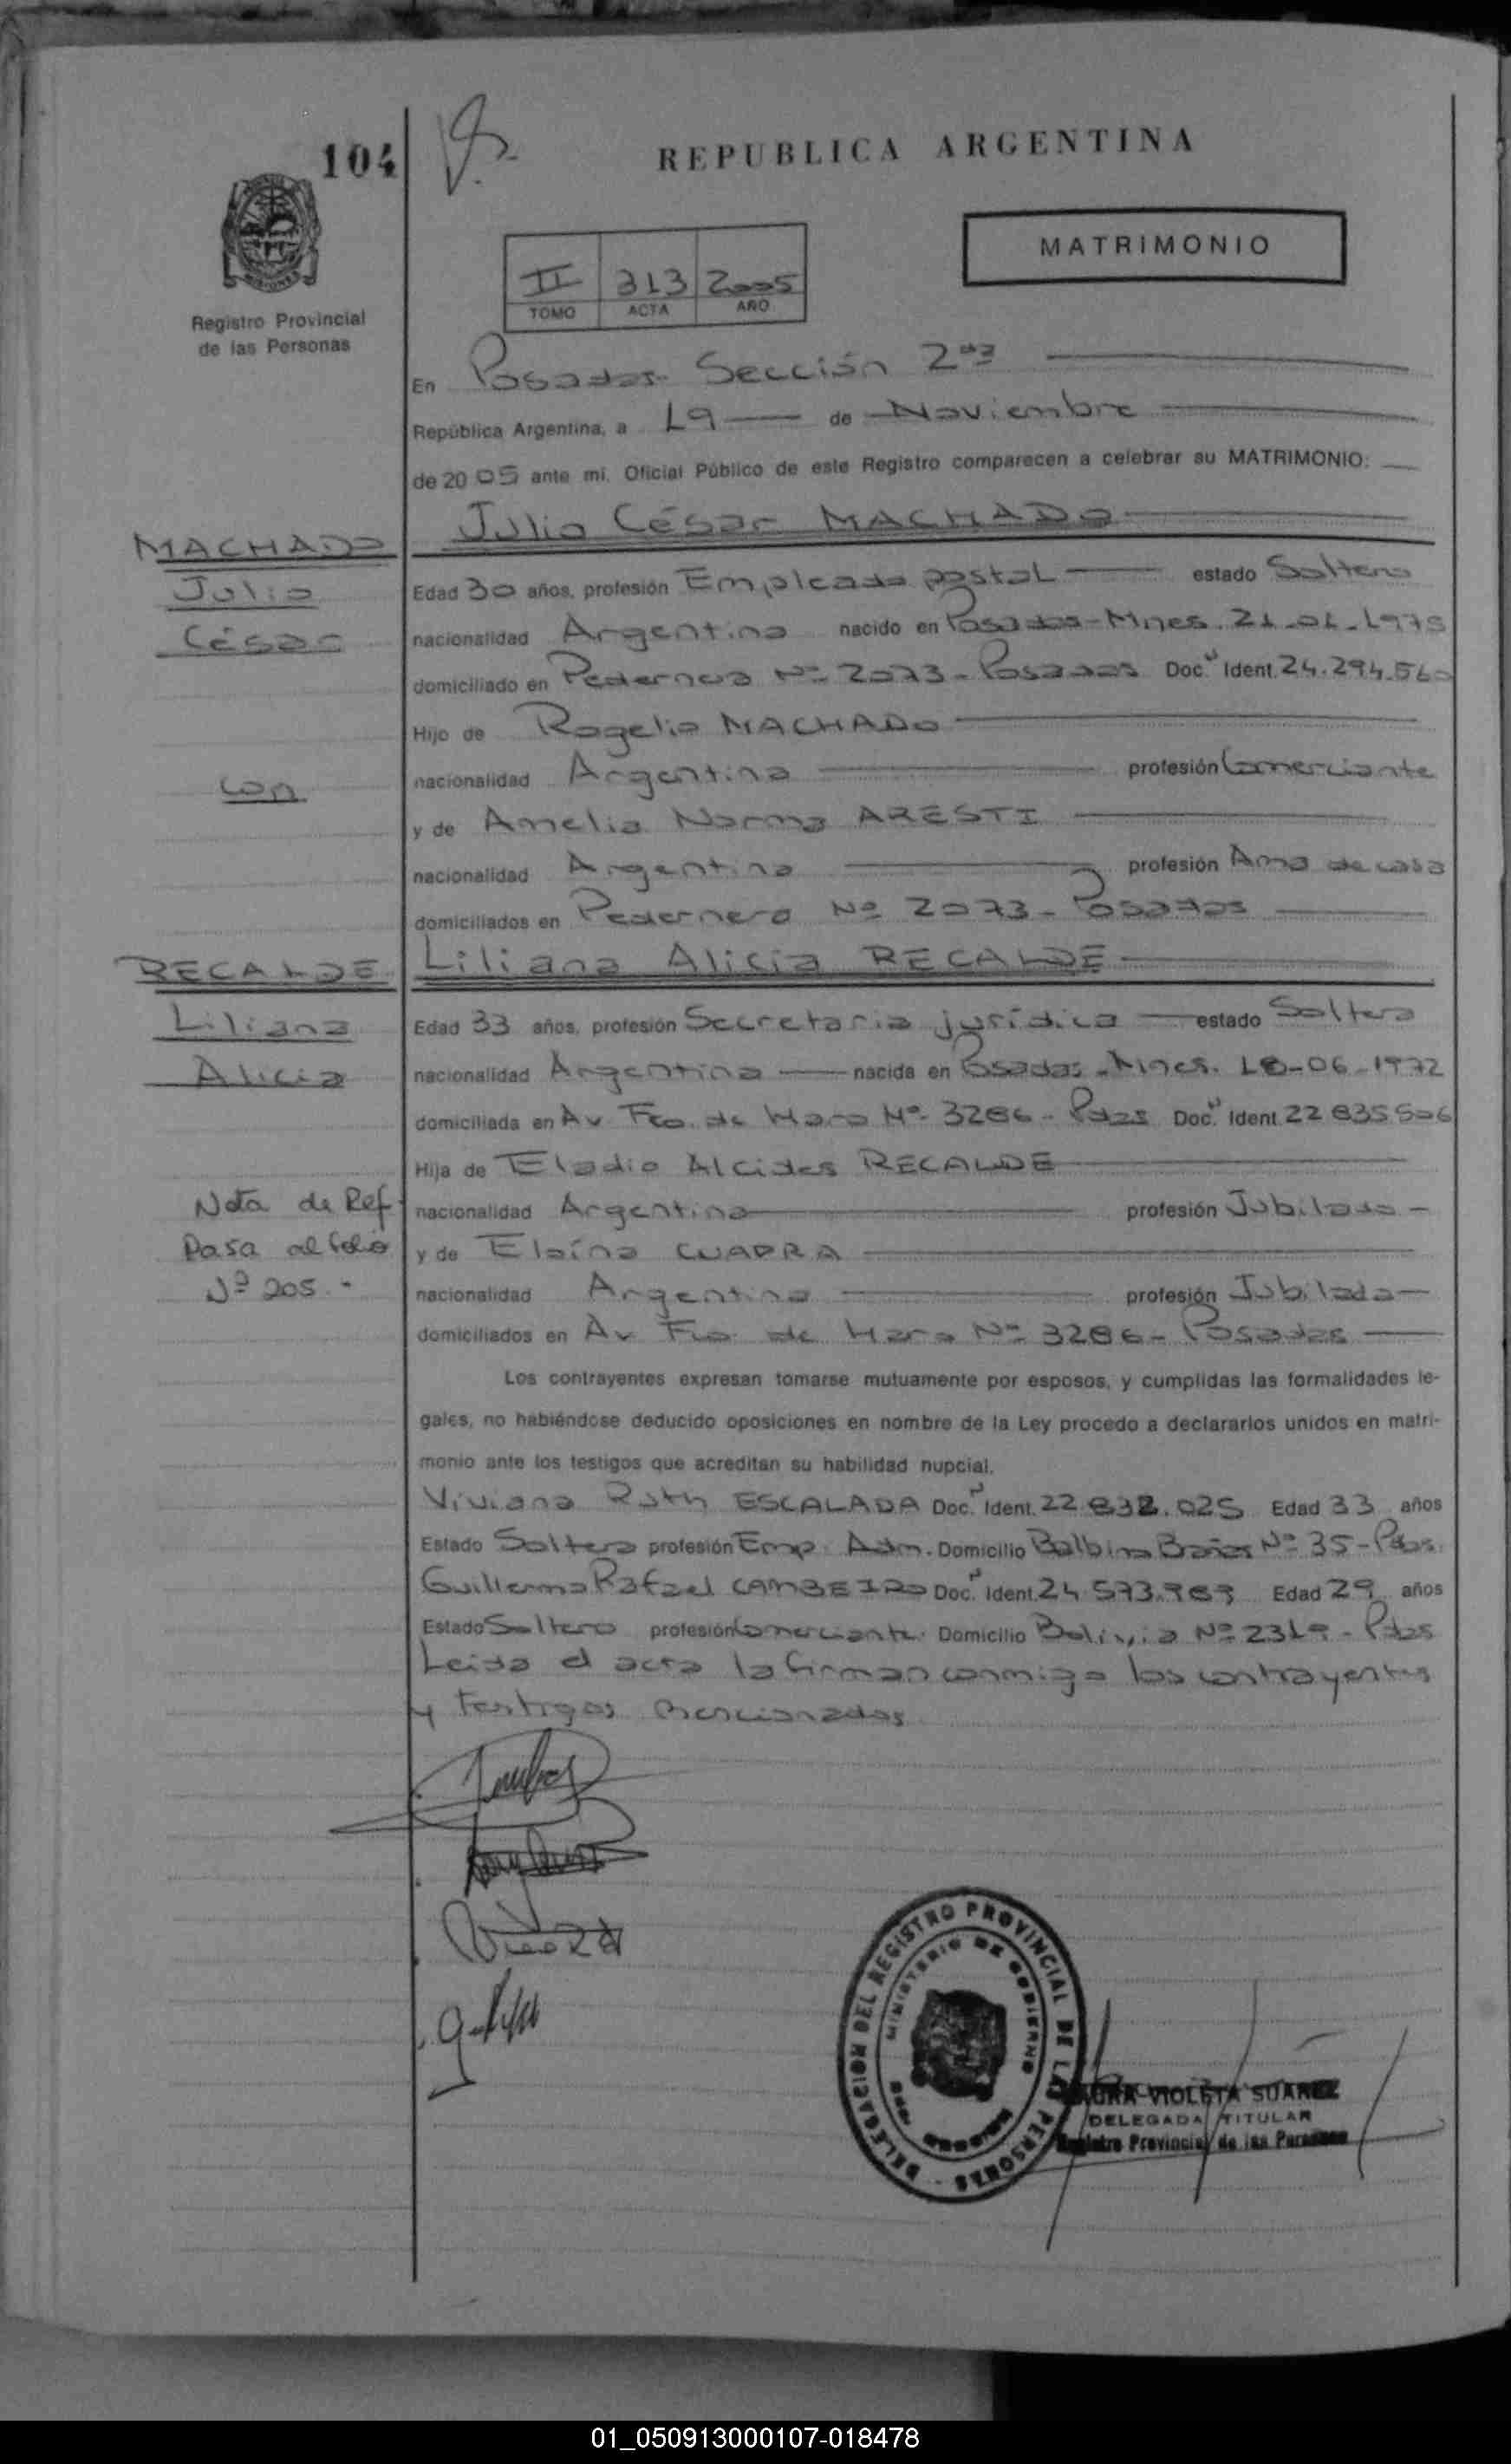 104
REPUBLICA ARGENTINA
MATRIMONIO
II 313 2005
TOMO ACTA AÑO
Registro Provincial
de las Personas
En Posadas Sección 2da
República Argentina, a 19 de Noviembre
de 20 05 ante mi, Oficial Público de este Registro comparecen a celebrar su MATRIMONIO:
Julio César MACHADO
MACHADO
Julio
César
Edad 30 años, profesión Empleado postal estado Soltero
nacionalidad Argentina nacido en Posadas - Mnes. 21-01-1975
domiciliado en Pedernera Nº 2073 - Posadas Doc. Ident. 24.294.560
Hijo de Rogelio MACHADO
nacionalidad Argentina profesión Comerciante
con
y de Amelia Norma ARESTI
nacionalidad Argentina profesión Ama de casa
domiciliados en Pedernera Nº 2073 - Posadas
Liliana Alicia RECALDE
RECALDE
Liliana
Alicia
Edad 33 años, profesión Secretaria jurídica estado Soltera
nacionalidad Argentina nacida en Posadas - Mnes. 18-06-1972
domiciliada en Av Fco. de Haro Nº 3286 - Pdas Doc. Ident. 22 835 506
Hija de Eladio Alcides RECALDE
nacionalidad Argentina profesión Jubilado -
y de Elaína CUADRA
nacionalidad Argentina profesión Jubilada
domiciliados en Av Fco. de Haro Nº 3286 - Posadas
Nota de Ref
Pasa al folio
Nº 205 -
Los contrayentes expresan tomarse mutuamente por esposos, y cumplidas las formalidades le-
gales, no habiéndose deducido oposiciones en nombre de la Ley procedo a declararlos unidos en matri-
monio ante los testigos que acreditan su habilidad nupcial.
Viviana Ruth ESCALADA Doc. Ident. 22.832.025 Edad 33 años
Estado Soltera profesión Emp. Adm. Domicilio Balbino Brañas Nº 35 - Pdas.
Guillermo Rafael CAMBEIRO Doc. Ident. 24.573.969 Edad 29 años
Estado Soltero profesión Comerciante Domicilio Bolivia Nº 2319 - Pdas
Leida el acta la firman conmigo los contrayentes
y testigos mencionados
DELEGACION DEL REGISTRO PROVINCIAL DE LAS PERSONAS
MINISTERIO DE GOBIERNO
MISIONES
VIOLETA SUAREZ
DELEGADA TITULAR
Registro Provincial de las Personas
01_050913000107-018478